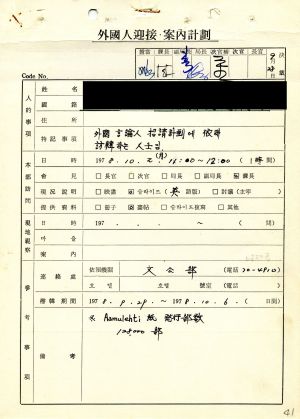 外國人迎接·案內計劃
擔當 課長 局長 次官補 次官 長官 決裁
Code No.
人的事項
姓名
國籍
住所
特記事項 外國 言論人 招請計劃에 依해
訪韓하는 人士임
(月)
本部訪問
日時 1978. 10. 2. 11:00 ~ 12:00 (1時間)
面談 長官 次官 局長 副局長 課長
現況說明 映畵 슬라이드(英語版) 討議(主宰)
提供資料 冊子 畵帖 슬라이드複寫 其他
現地視察
日時 197 . . . ~ . . (日間)
마을
案內
參考事項
連絡處 依賴機關 文公部 (電話 70-4910)
호텔 호텔 號室 (電話 )
滯韓期間 1978. 9. 29. ~ 1978. 10. 6. (日間)
備考
Aamulehti 紙 發行部數
128,000 部
41